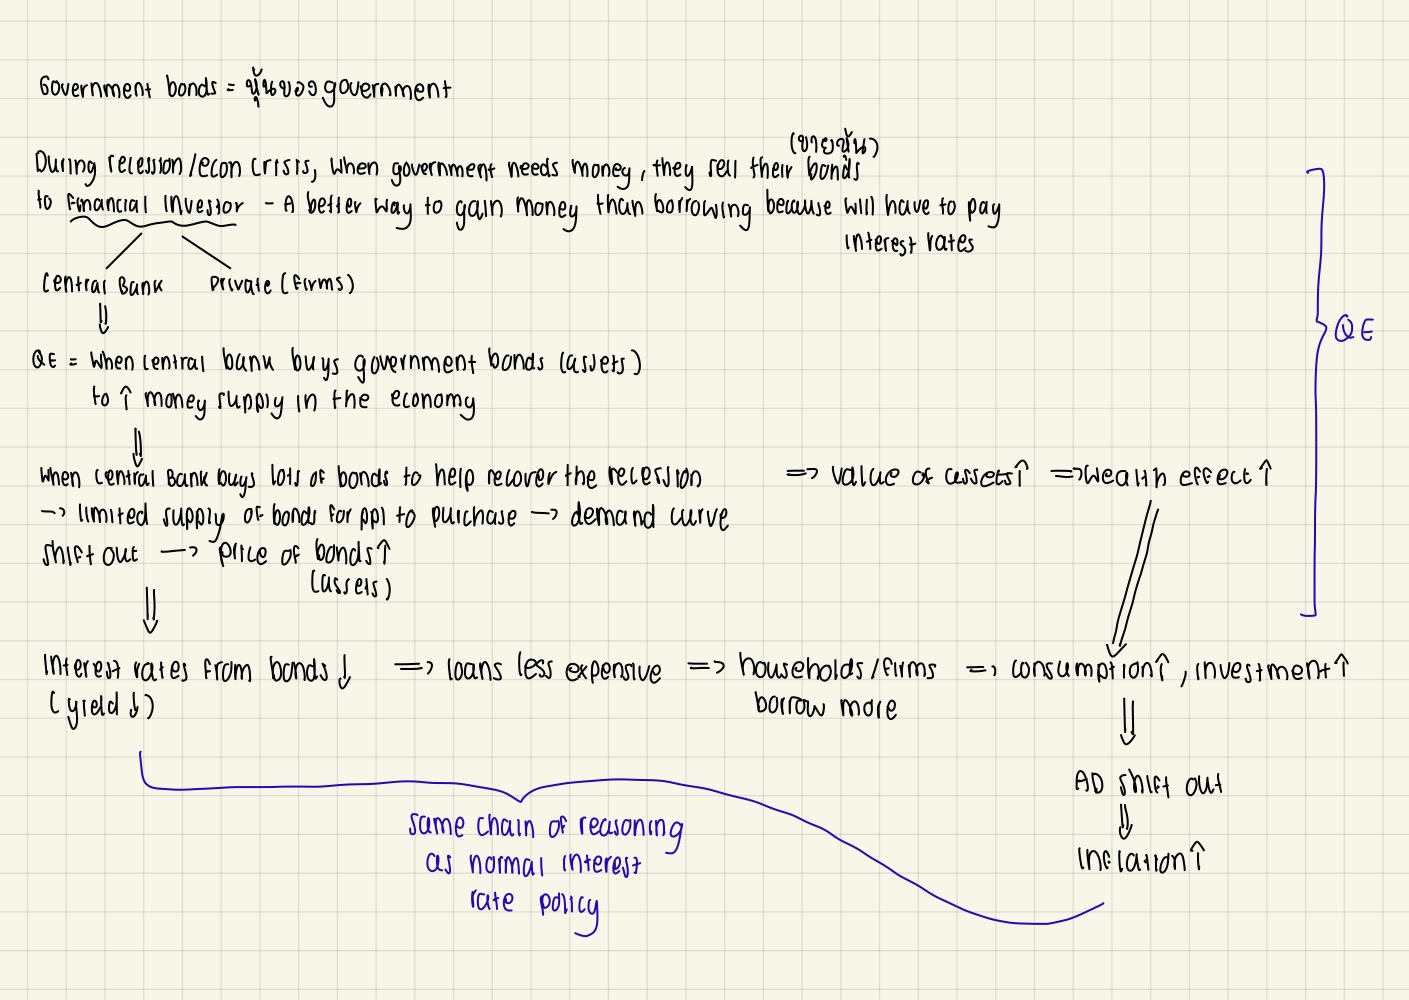 Government bonds = หุ้นของ government
(ขายหุ้น)
During recession/econ crisis, when government needs money, they sell their bonds
to financial investor - A better way to gain money than borrowing because will have to pay
interest rates
Central Bank private (firms)
⇓
QE = when central bank buys government bonds (assets)
to ↑ money supply in the economy
⇓
When Central Bank buys lots of bonds to help recover the recession => value of assets↑ => wealth effect ↑
-> limited supply of bonds for ppl to purchase -> demand curve
shift out -> price of bonds↑
(assets)
⇓
Interest rates from bonds ↓ => loans less expensive => households/firms => consumption↑, investment↑
(yield ↓) borrow more
⇓
AD shift out
⇓
Inflation↑
same chain of reasoning
as normal interest
rate policy
QE